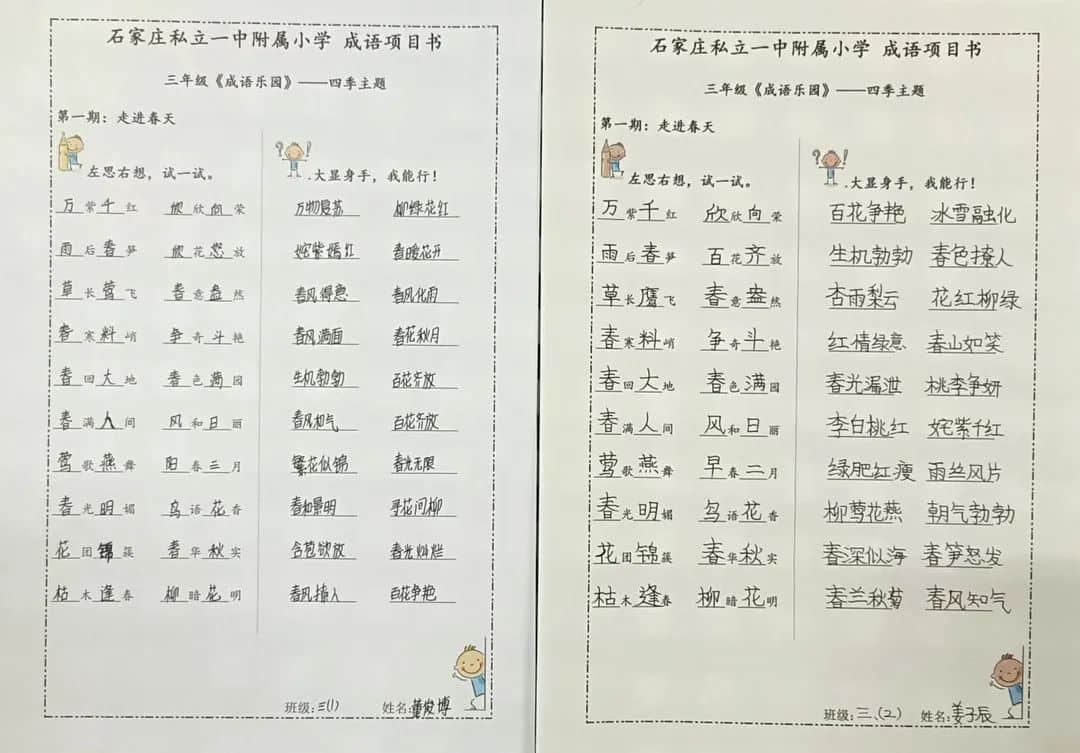 石家庄私立一中附属小学 成语项目书
三年级《成语乐园》——四季主题
第一期：走进春天
左思右想，试一试。 大显身手，我能行！
万紫千红 欣欣向荣 万物复苏 柳绿花红
雨后春笋 欣花怒放 姹紫嫣红 春暖花开
草长莺飞 春意盎然 春风得意 春风化雨
春寒料峭 争奇斗艳 春风满面 春花秋月
春回大地 春色满园 生机勃勃 百花齐放
春满人间 风和日丽 春风和气 百花齐放
莺歌燕舞 阳春三月 繁花似锦 春光无限
春光明媚 鸟语花香 春和景明 寻花问柳
花团锦簇 春华秋实 含苞欲放 春光灿烂
枯木逢春 柳暗花明 春风撩人 百花争艳
班级：三(1) 姓名：董俊博
石家庄私立一中附属小学 成语项目书
三年级《成语乐园》——四季主题
第一期：走进春天
左思右想，试一试。 大显身手，我能行！
万紫千红 欣欣向荣 百花争艳 冰雪融化
雨后春笋 百花齐放 生机勃勃 春色撩人
草长鹰飞 春意盎然 杏雨梨云 花红柳绿
春寒料峭 争奇斗艳 红情绿意 春山如笑
春回大地 春色满园 春光漏泄 桃李争妍
春满人间 风和日丽 李白桃红 姹紫千红
莺歌燕舞 早春三月 绿肥红瘦 雨丝风片
春光明媚 鸟语花香 柳莺花燕 朝气勃勃
花团锦簇 春华秋实 春深似海 春笋怒发
枯木逢春 柳暗花明 春兰秋菊 春风知气
班级：三、(2) 姓名：姜子辰